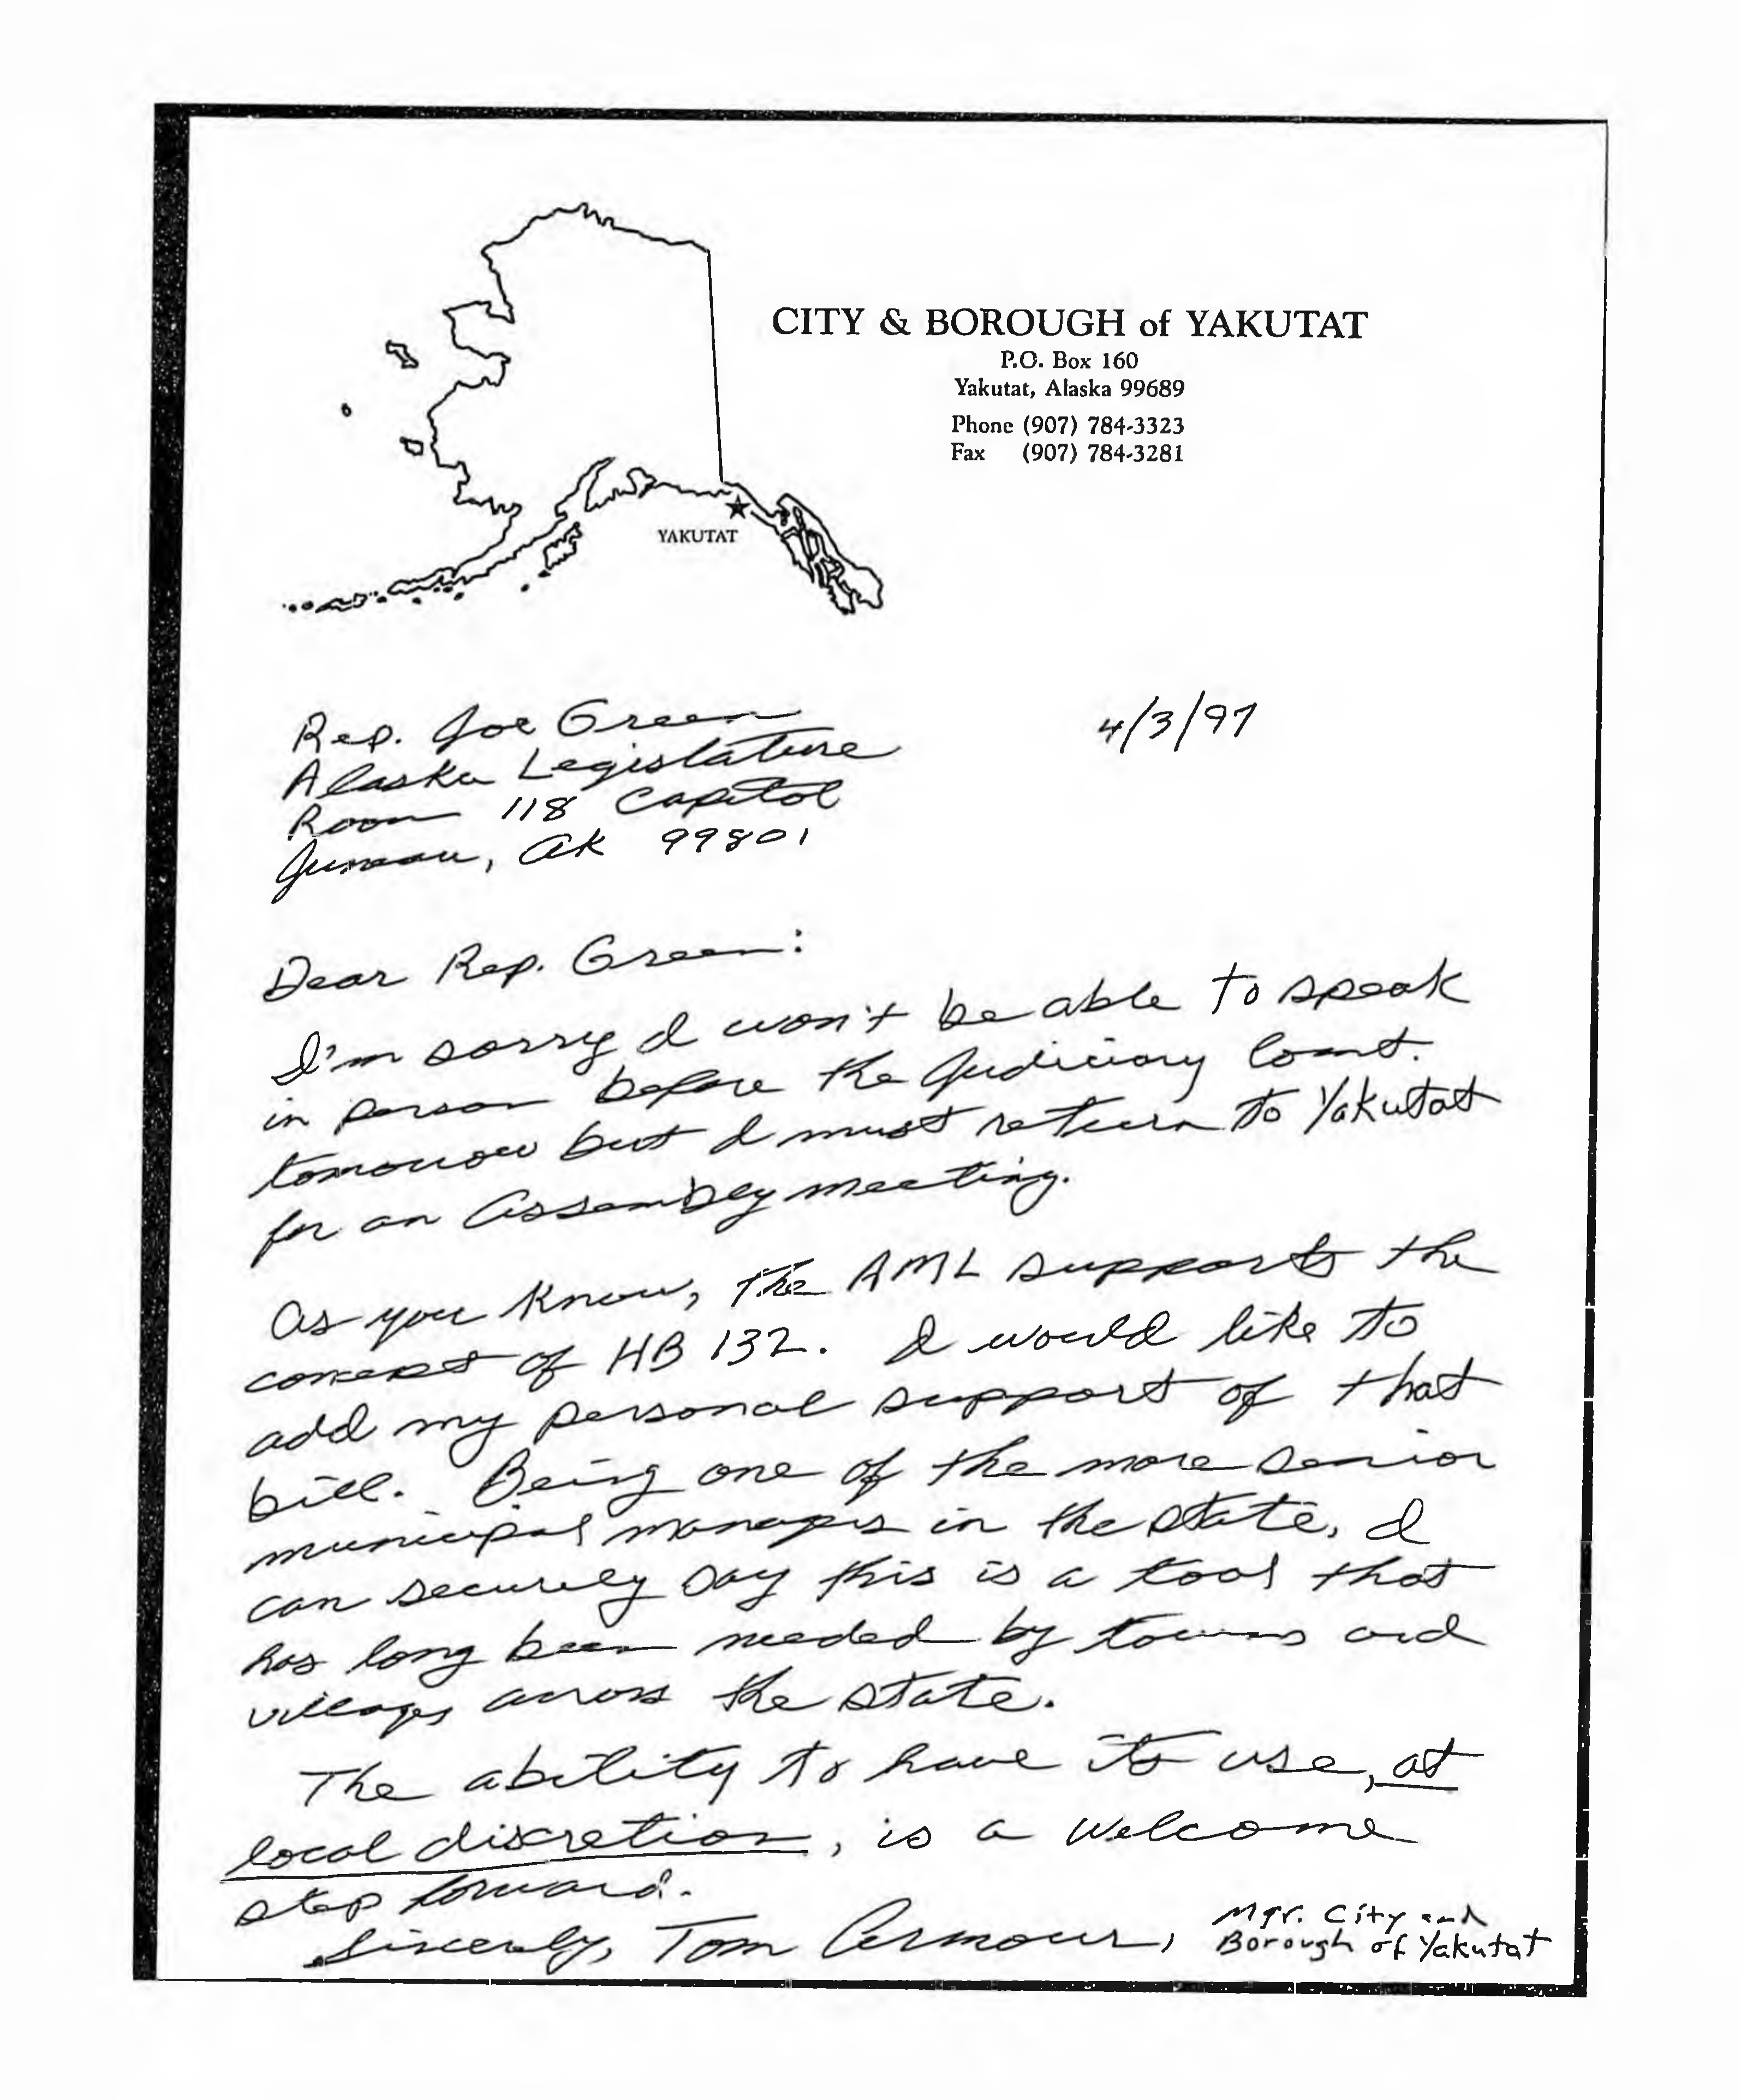 CITY & BOROUGH of YAKUTAT
P.O. Box 160
Yakutat, Alaska 99689
Phone (907) 784-3323
Fax (907) 784-3281
YAKUTAT
4/3/97
Rep. Joe Green
Alaska Legislature
Room 118 Capitol
Juneau, AK 99801
Dear Rep. Green:
I'm sorry I won't be able to speak
in person before the Judiciary Comt.
tomorrow but I must return to Yakutat
for an Assembly meeting.
As you know, the AML supports the
concept of HB 132. I would like to
add my personal support of that
bill. Being one of the more senior
municipal managers in the state, I
can securely say this is a tool that
has long been needed by towns and
villages across the state.
The ability to have its use, at
local discretion, is a welcome
step forward.
Sincerely, Tom Armour, Mgr. City and
Borough of Yakutat